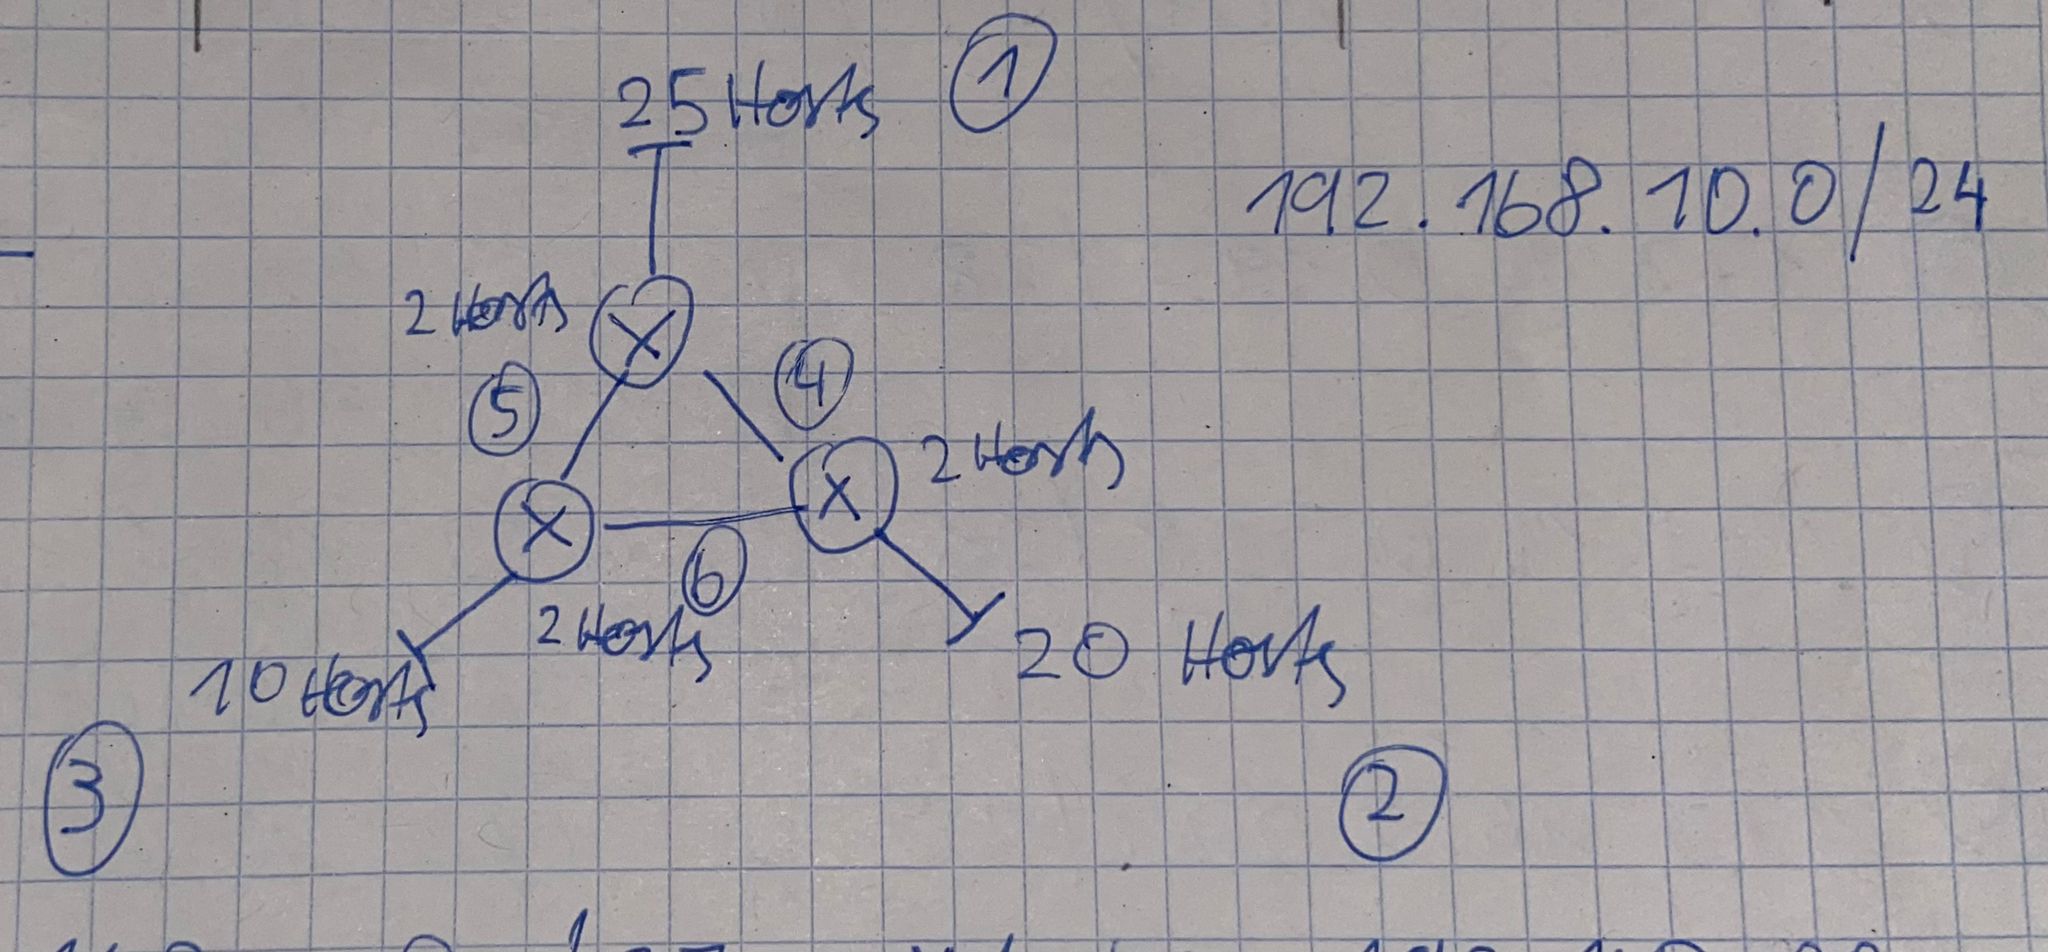 25 Hosts 1
192.168.10.0/24
2 Hosts
5
4
2 Hosts
6
2 Hosts
20 Hosts
10 Hosts
3
2